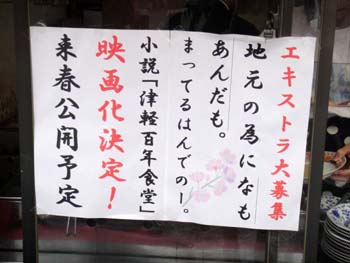 エキストラ大募集
地元の為になも
あんだも。
まってるはんでのー。
小説「津軽百年食堂」
映画化決定！
来春公開予定